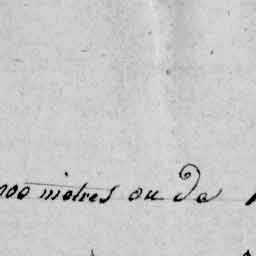 100 mètres ou de